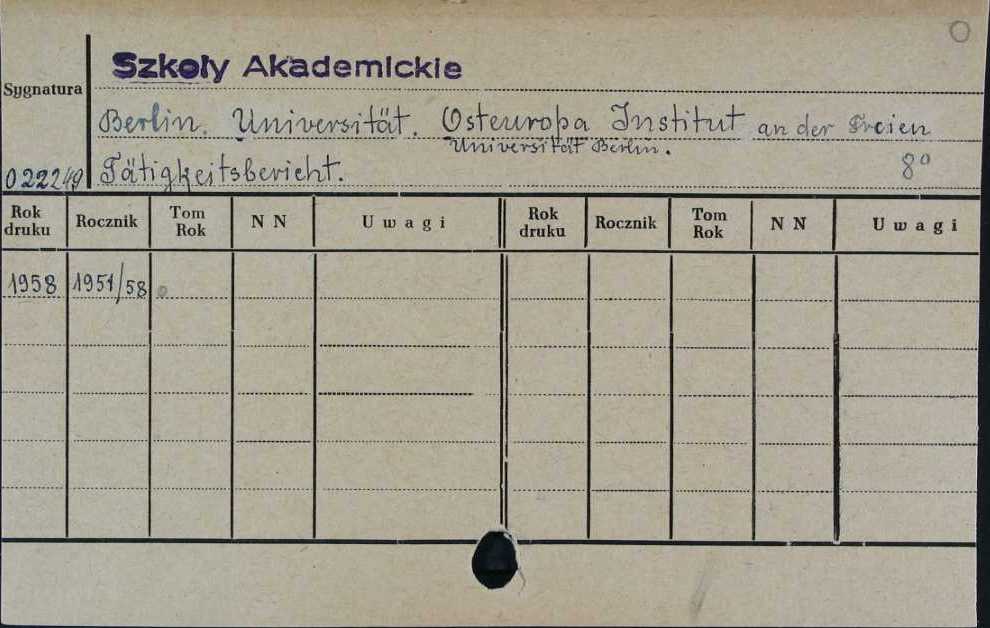 Szkoły Akademickie
Sygnatura
Berlin. Universität. Osteuropa Institut an der Freien
Universität Berlin.
022249 Tätigkeitsbericht. 8°
Rok druku Rocznik Tom Rok N N Uwagi Rok druku Rocznik Tom Rok N N Uwagi
1958 1951/58